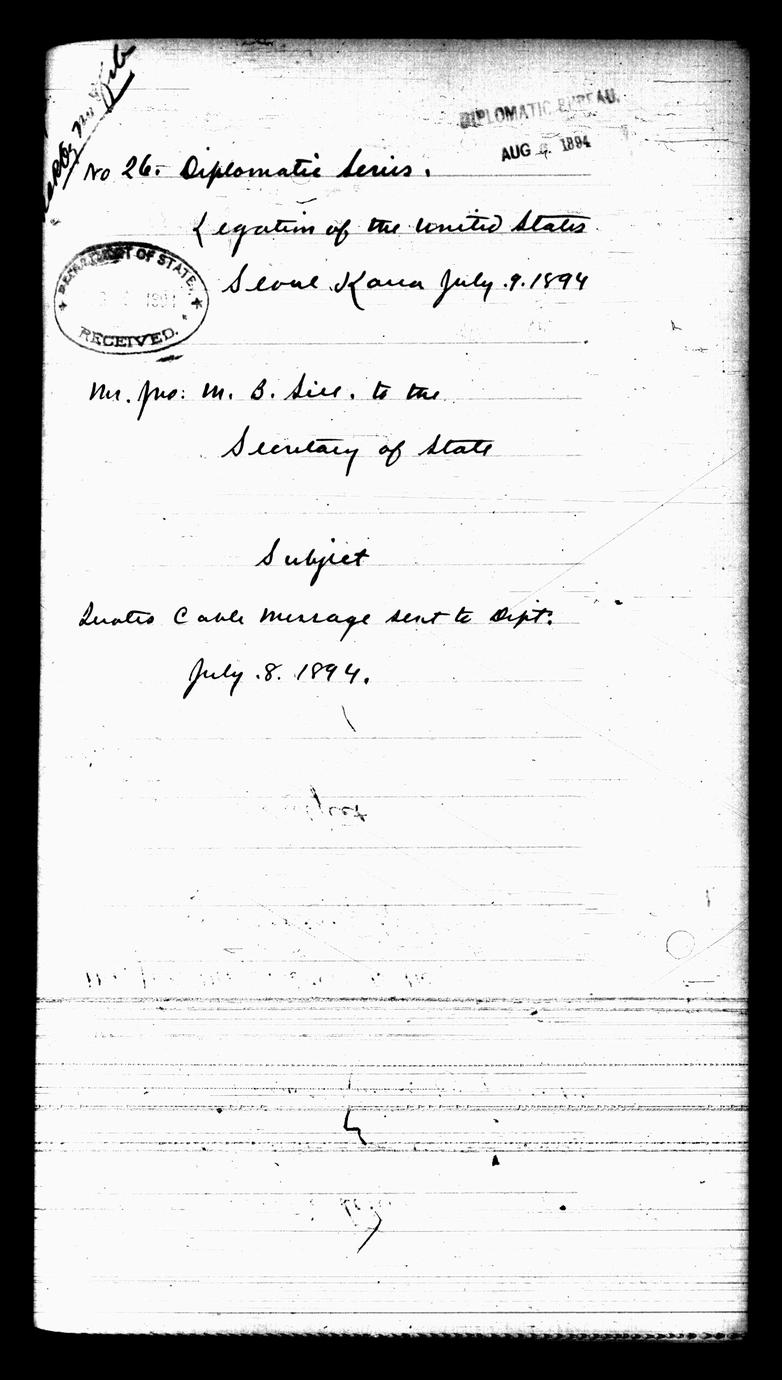 DIPLOMATIC BUREAU.
AUG 1894
No 26. Diplomatic Series.
Legation of the United States
Seoul Korea July .9. 1894
DEPARTMENT OF STATE,
1894
RECEIVED.
Mr. Jno: M. B. Sill. to the
Secretary of State
Subject
Quotes Cable Message sent to Dept:
July .8. 1894.